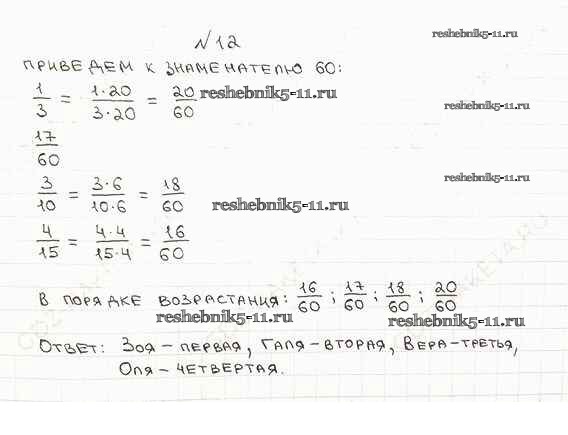 №12
reshebnik5-11.ru
ПРИВЕДЕМ К ЗНАМЕНАТЕЛЮ 60:
1/3 = 1·20/3·20 = 20/60
reshebnik5-11.ru
reshebnik5-11.ru
17/60
reshebnik5-11.ru
3/10 = 3·6/10·6 = 18/60
reshebnik5-11.ru
4/15 = 4·4/15·4 = 16/60
В ПОРЯДКЕ ВОЗРАСТАНИЯ: 16/60 ; 17/60 ; 18/60 ; 20/60
reshebnik5-11.ru
reshebnik5-11.ru
ОТВЕТ: ЗОЯ – ПЕРВАЯ, ГАЛЯ – ВТОРАЯ, ВЕРА – ТРЕТЬЯ,
ОЛЯ – ЧЕТВЕРТАЯ.